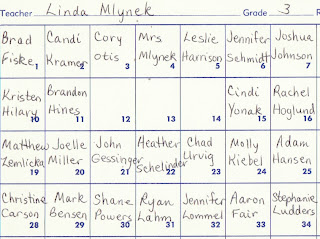 Teacher Linda Mlynek Grade 3
Brad Candi Cory Mrs Leslie Jennifer Joshua
Fiske Kramer Otis Mlynek Harrison Schmidt Johnson
1 2 3 4 5 6 7
Kristen Brandon Cindi Rachel
Hilary Hines Yonak Hoglund
10 11 12 13 14 15 16
Matthew Joelle John Heather Chad Molly Adam
Zemlicka Miller Gessinger Schelinder Urvig Kiebel Hansen
19 20 21 22 23 24 25
Christine Mark Shane Ryan Jennifer Aaron Stephanie
Carson Bensen Powers Lahm Lommel Fair Ludders
28 29 30 31 32 33 34